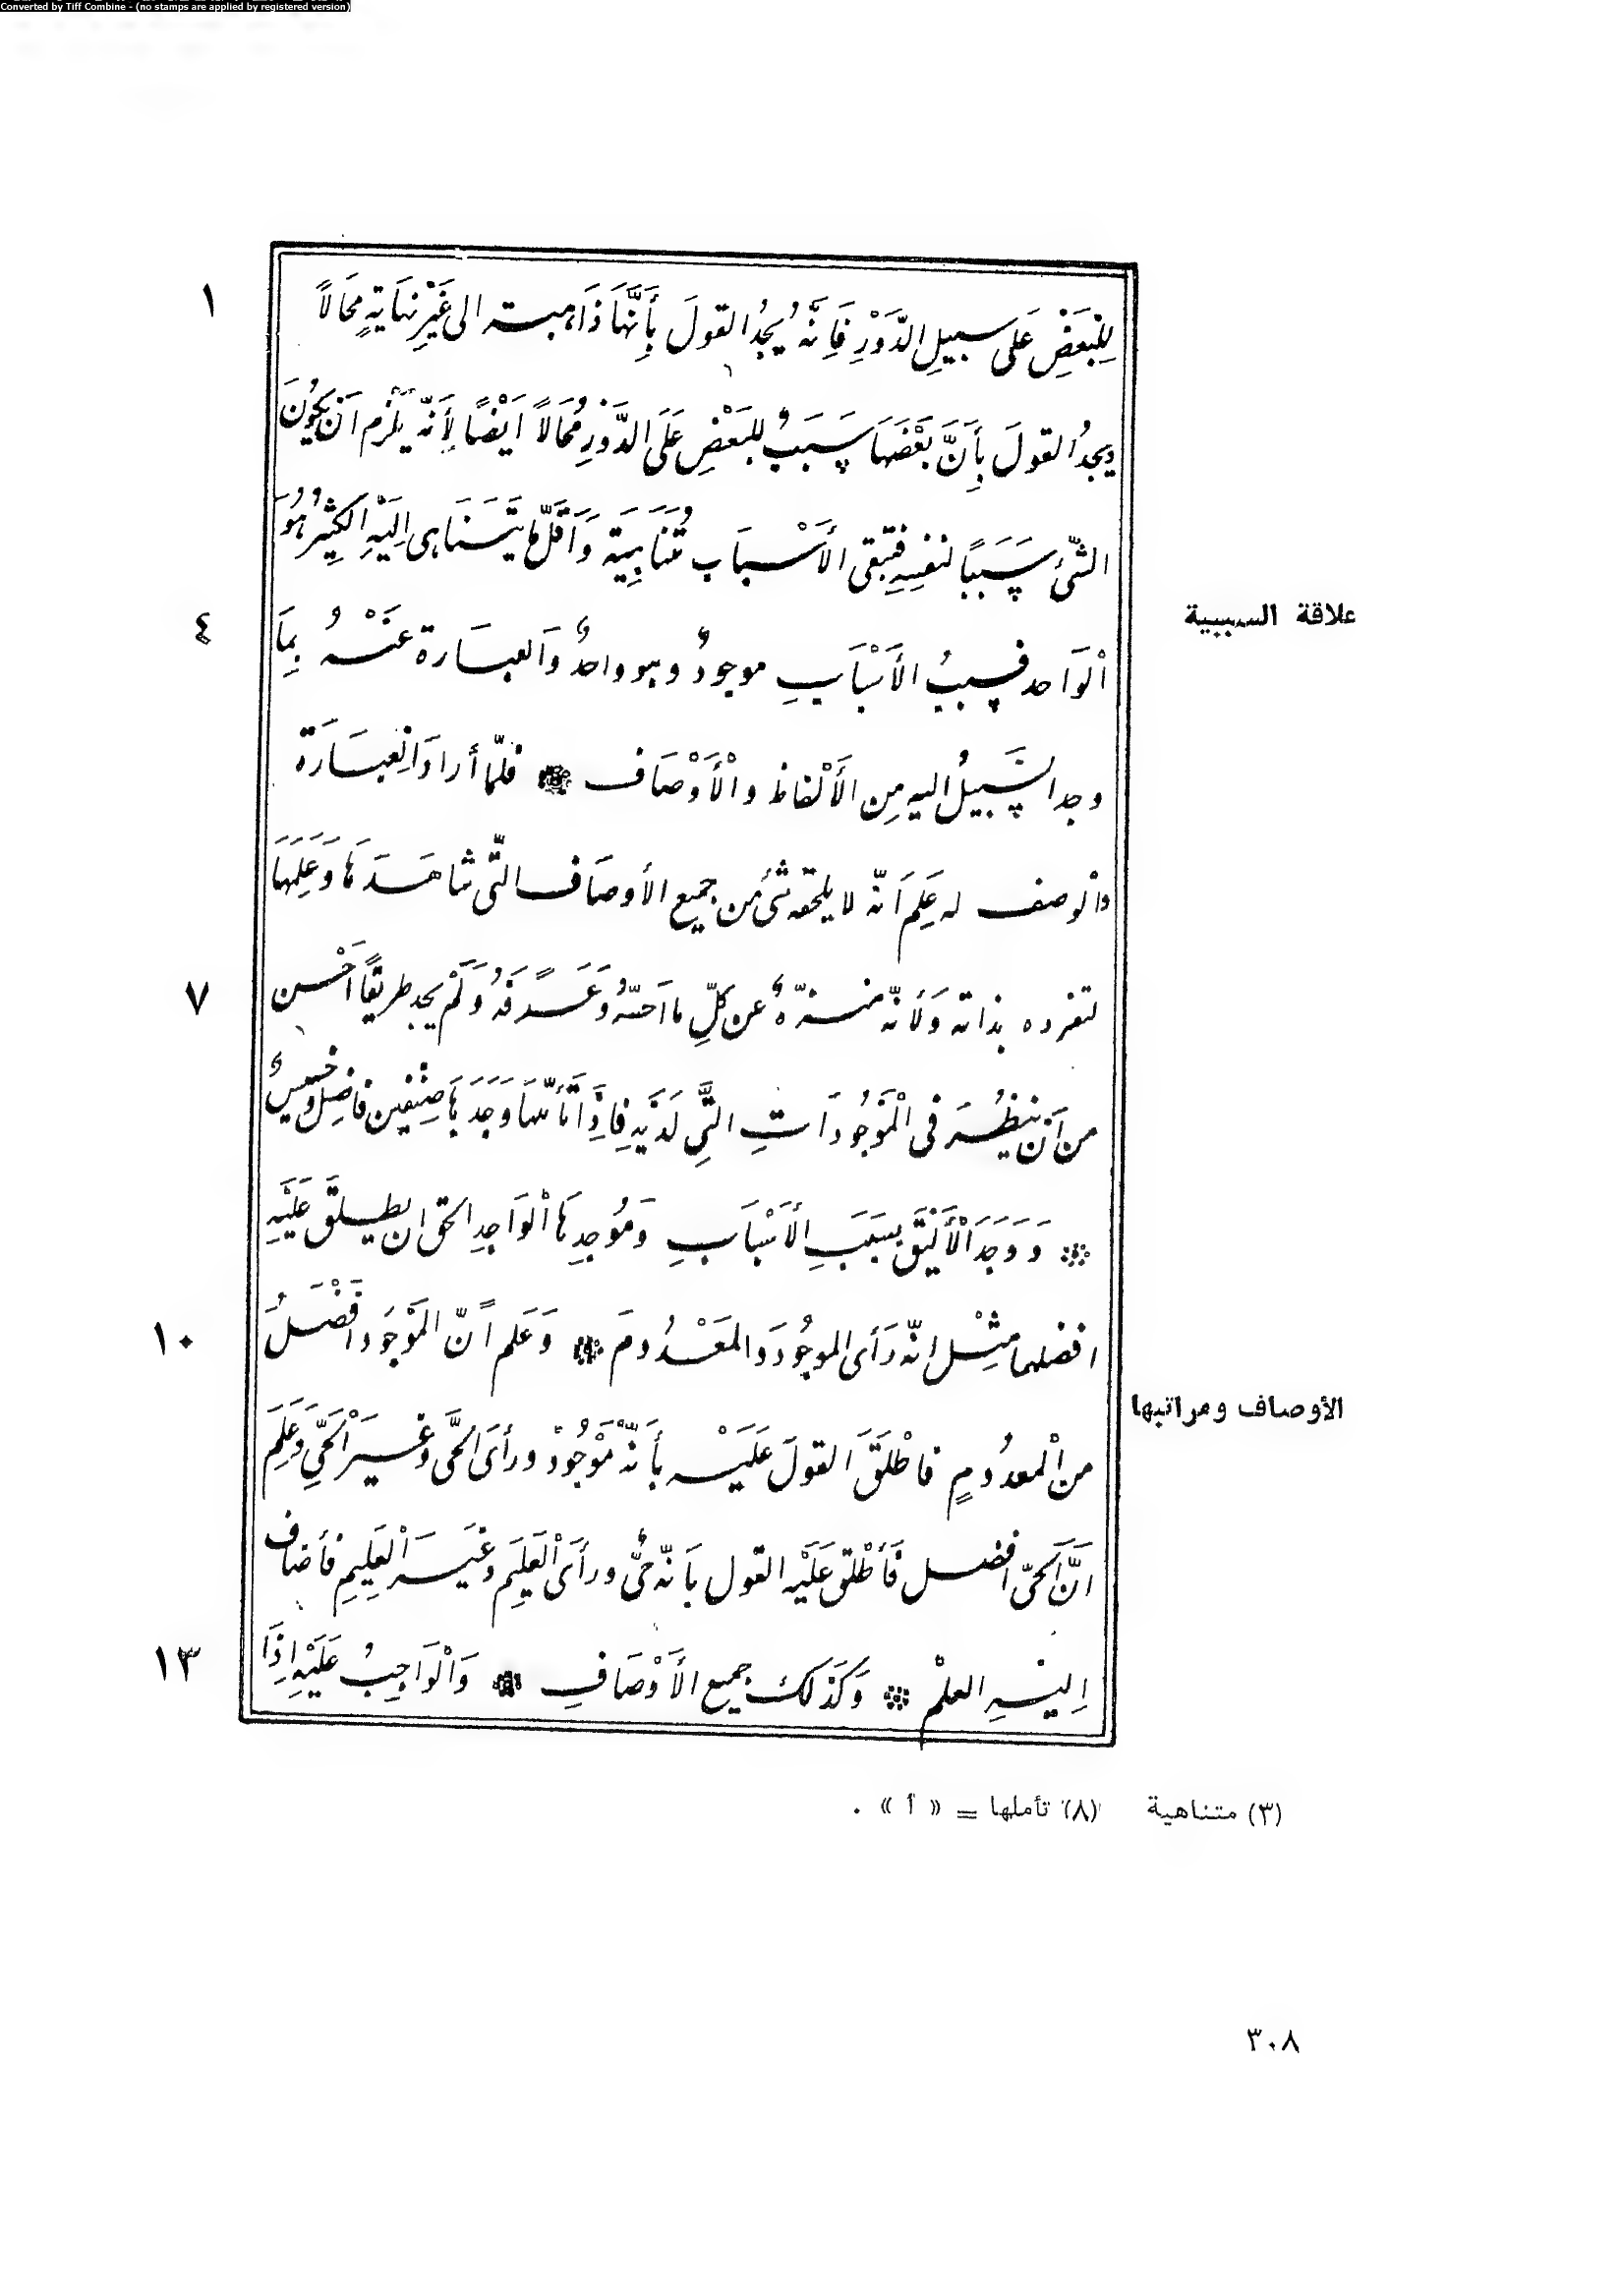 Converted by Tiff Combine - (no stamps are applied by registered version)
١
لِلْبَعْضِ عَلَى سبيلِ الدَّوْرِ فَاِنَّهُ يَجِدُ القولَ بِأَنَّهَا ذَاهبة الى غَيْرِ نِهَايَةٍ مُحَالاً
ويجدُ القولَ بِأَنَّ بَعْضَهَا سَبَبٌ لِلبَعْضِ عَلَى الدَّوْرِ مُحَالاً اَيْضًا لِأَنَّه يَلْزم اَن يَكُونَ
الشَّئ سَبَبًا لنفسِهِ فتبقى الأَسْبَاب مُتَنَاهِيَة وَاَقَلّ مَا يَتَنَاهى اِلَيْهِ الكَثِيْرُ هُوَ
علاقة السببية
٤
اْلوَاحد فسببُ الأَسْبَابِ موجودٌ وهو واحدٌ وَالعبَارة عَنْهُ بِمَا
وجد السَّبيلُ اليه مِن الأَلْفاظ واْلأَوْصَاف فلمّا أراد اَلعِبَارَة
واْلوصف له عَلِمَ اَنّه لا يلحقه شئ من جميع الأوصَاف الّتى شاهَدَهَا وَعَلِمَهَا
٧
لتفرده بذاته وَلأنّه منزّهٌ عن كلِّ ما احَسّهُ وَعَرَفَهُ وَلَمْ يجد طريقًا اَحْسن
من اَن يَنظُرَ فى الْمَوْجُودَاتِ الَّتِى لَدَيْهِ فَاِذَا تَأَمَّلهَا وَجَدَهَا صِنْفَين فاضِل وخسيسٌ
وَوَجَدَ اْلأَلْيَقَ بِسَبَبِ الأَسْبَابِ وَمُوجِدِهَا اْلوَاحِدِ الحق ان يطلقَ عَلَيْهِ
١٠
افضلهما مِثْل اِنّه رَأى الموجُودَ وَالمَعْدُومَ وَعَلم اَنّ المَوْجُودَ افْضَلُ
الأوصاف ومراتبها
من اْلمعدُومِ فاطْلَقَ القولَ عَلَيْه بِأَنَّه مَوْجُودْ ورأىَ الحَىَّ وغَيرَ اْلحَىِّ وَعَلِمَ
انَّ اَلحَىّ افضل فَأَطْلق عَلَيْه القول بأنّه حَىٌّ ورأىَ اْلعَلِيَم وغَيرَ اْلعَلِيمِ فأضاف
١٣
اِليْهِ العلْم وَكَذلك جميع الأَوْصَافِ وَاْلوَاجِبُ عَلَيْهِ اِذَا
(٣) متناهية (٨) تأملها = « أ » .
٣٠٨